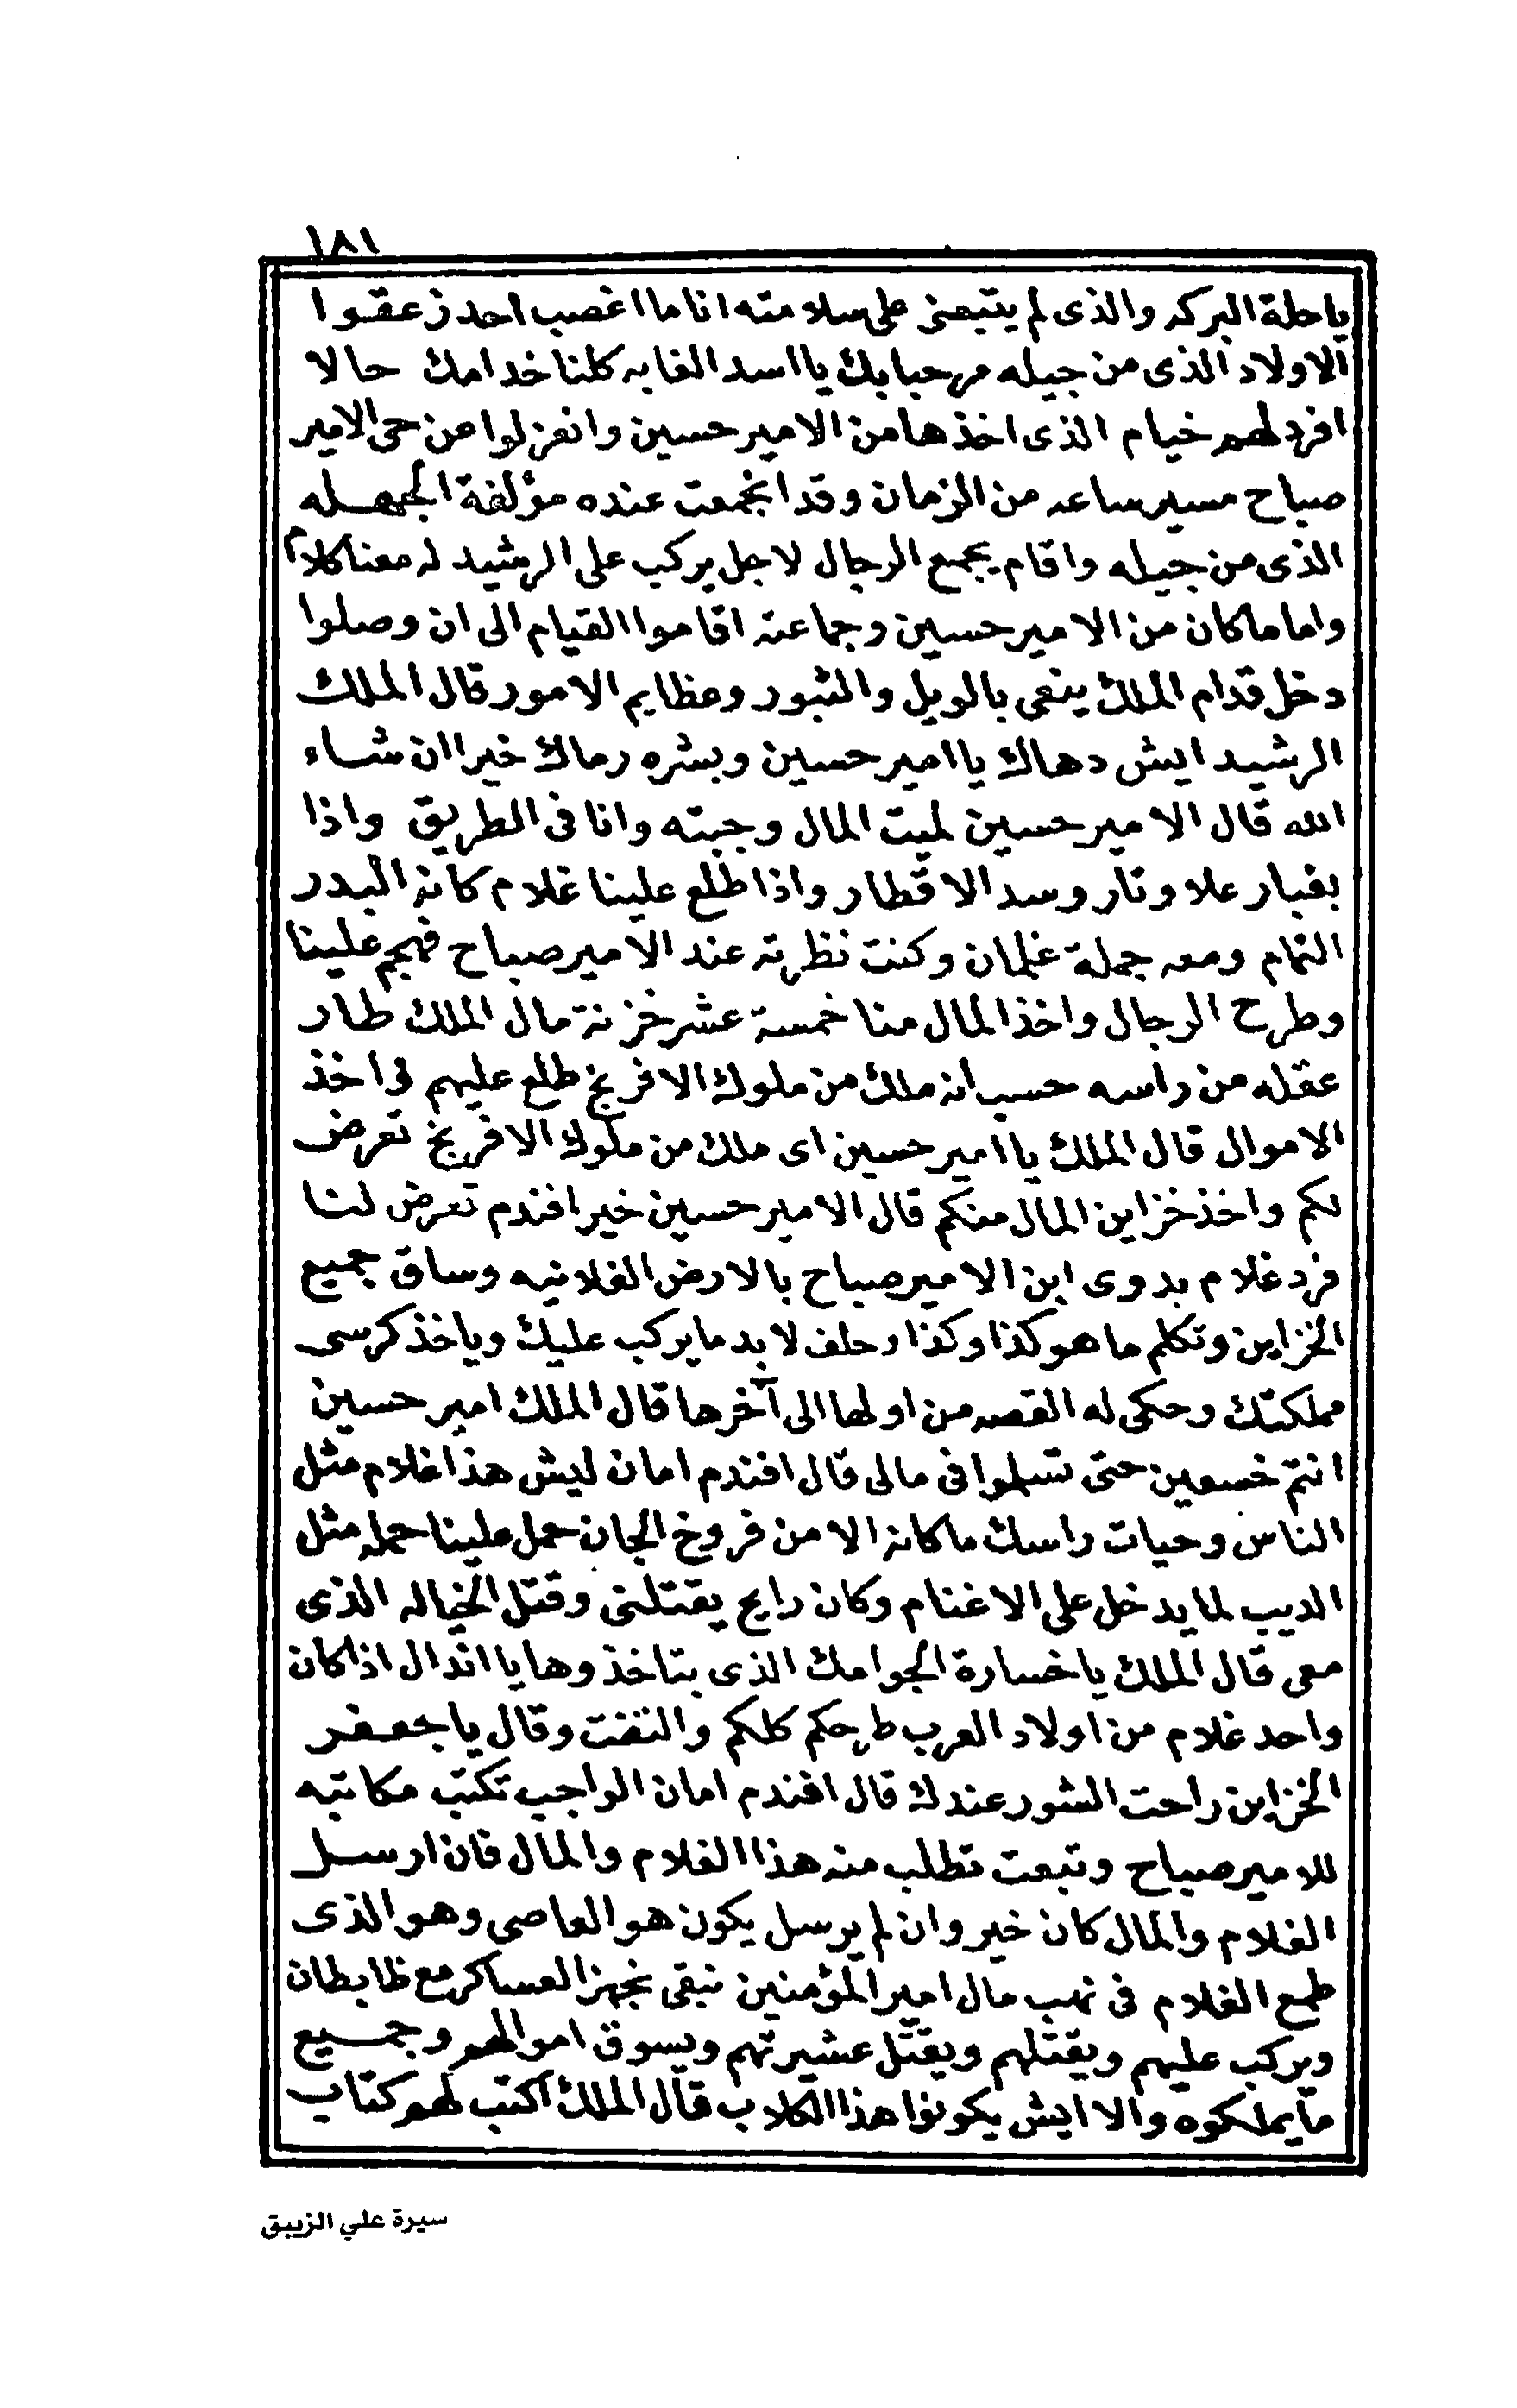 ١٨١
ياحلة البركه والذى لم يتبعنى على سلامته انا ما اغصب احد زعقوا
الاولاد الذى من جيله مرحبا بك يا اسد الغابه كلنا خدامك حالا
افرد لهم خيام الذى اخذها من الامير حسين وانعزلوا عن حى الامير
صباح مسير ساعه من الزمان وقد انجمعت عنده مؤلفة الجهله
الذى من جيله واقام يجمع الرجال لاجل يركب على الرشيد له معنا كلام
واما ماكان من الامير حسين وجماعته اقاموا القيام الى ان وصلوا
دخل قدام الملك ينعى بالويل والثبور وعظايم الامور قال الملك
الرشيد ايش دهاك يا امير حسين وبشره رماك خير اان شاء
الله قال الامير حسين لميت المال وجبته وانا فى الطريق واذا
بغبار علا وتار وسد الاقطار واذا طلع علينا غلام كانه البدر
التمام ومعه جملة غلمان وكنت نظرته عند الامير صباح فهجم علينا
وطرح الرجال واخذ المال منا خمسة عشر خزنة مال الملك طار
عقله من راسه حسب انه ملك من ملوك الافرنج طلع عليهم فى اخذ
الاموال قال الملك يا امير حسين اى ملك من ملوك الافرنج تعرض
لكم واخذ خزاين المال منكم قال الامير حسين خير افندم تعرض لنا
فرد غلام بدوى ابن الامير صباح بالارض الفلانيه وساق جميع
الخزاين وتكلم ما هو كذا وكذا وحلف لابد ما يركب عليك وياخذ كرسى
مملكتك وحكى له القصه من اولها الى آخرها قال الملك امير حسين
انتم خسعين حتى تسلموا فى مالى قال افندم امان ليش هذا غلام مثل
الناس وحيات راسك ما كانه الا من فروخ الجان حمل علينا حمله مثل
الديب لما يدخل على الاغنام وكان رايح يقتلنى وقتل الخياله الذى
معى قال الملك يا خسارة الجوامك الذى بتاخذوها يا اندال اذا كان
واحد غلام من اولاد العرب طرحكم كلكم والتفت وقال يا جعفر
الخزاين راحت الشور عندك قال افندم امان الواجب تكتب مكاتبه
للامير صباح وتبعت تطلب منه هذا الغلام والمال فان ارسل
الغلام والمال كان خير وان لم يرسل يكون هو العاصى وهو الذى
طمع الغلام فى نهب مال امير المؤمنين نبقى نجهز العساكر مع ظابطان
ويركب عليهم ويقتلهم ويقتل عشيرتهم ويسوق اموالهم وجميع
ما يملكوه والا ايش يكونوا هذا الكلاب قال الملك اكتب لهم كتاب
سيرة علي الزيبق